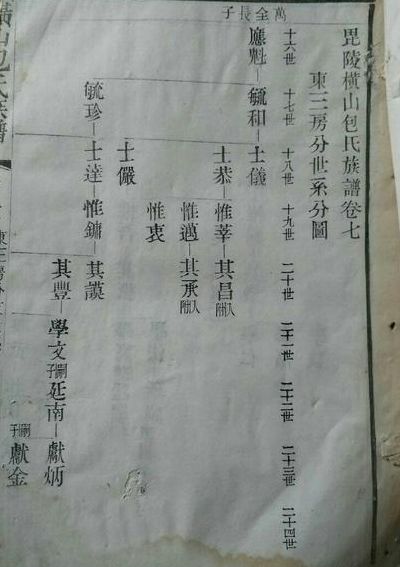 毘陵橫山包氏族譜卷七
東三房分世系分圖
萬全長子
十六世 十七世 十八世 十九世 二十世 二十一世 二十二世 二十三世 二十四世
應魁 毓和 士儀
士恭 惟莘 其昌入附
惟邁 其承入附
惟衷
士儼
毓珍 士達 惟鏞 其謨
其豐 學文 嗣子廷南 獻炳
嗣子獻金
橫山包氏族譜